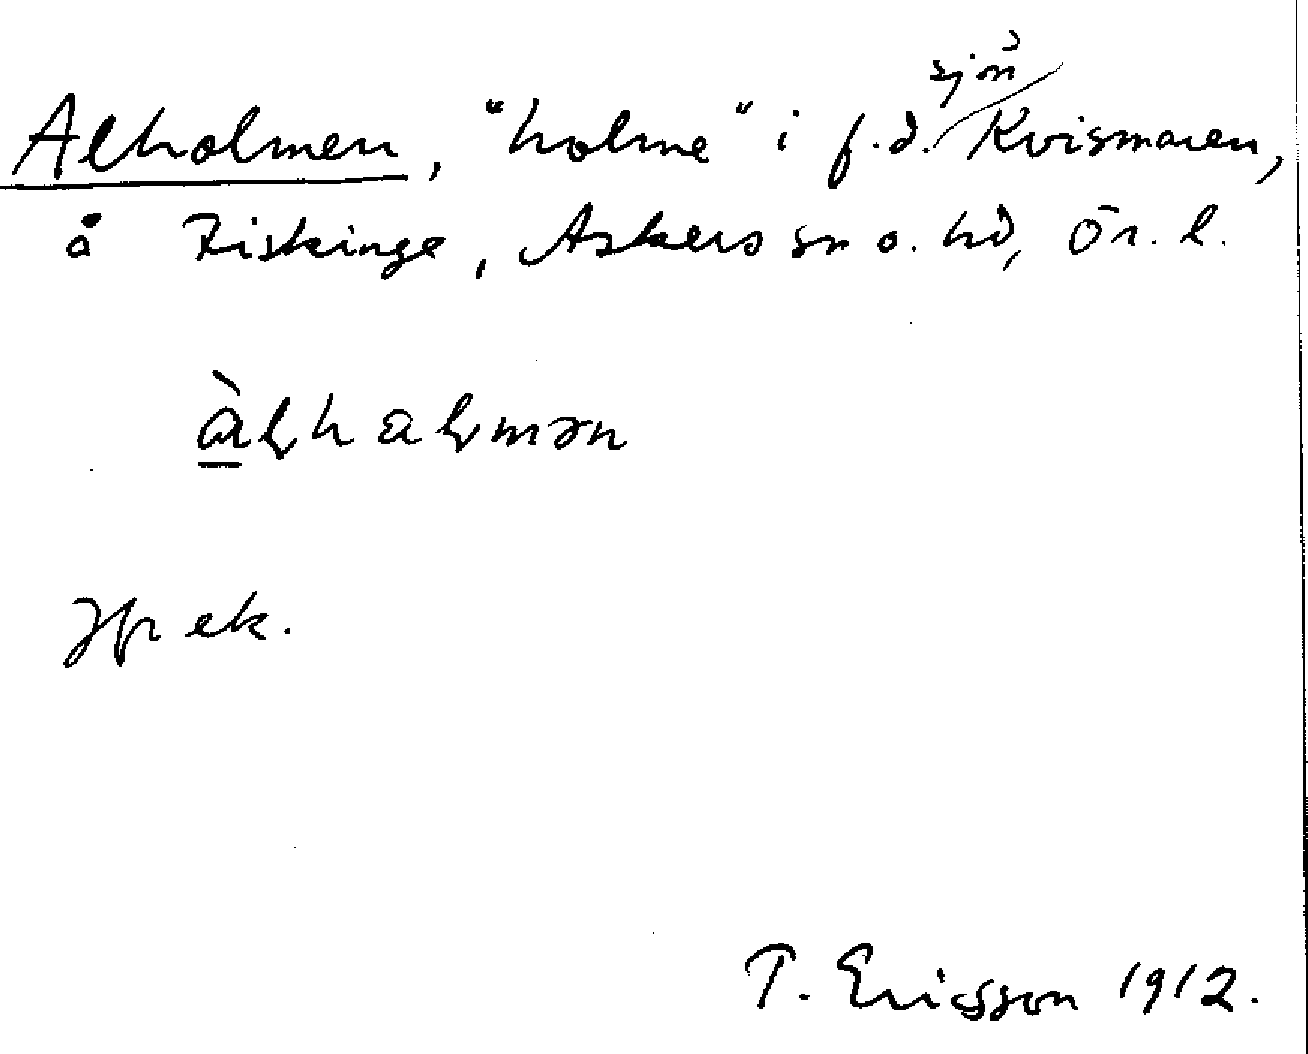 Alholmen, "holme" i f.d. sjön Kvismaren,
å Fiskinge, Askers sn o. hd, Ör. l.
àɽhaɽmən
Jfr ek.
T. Ericsson 1912.